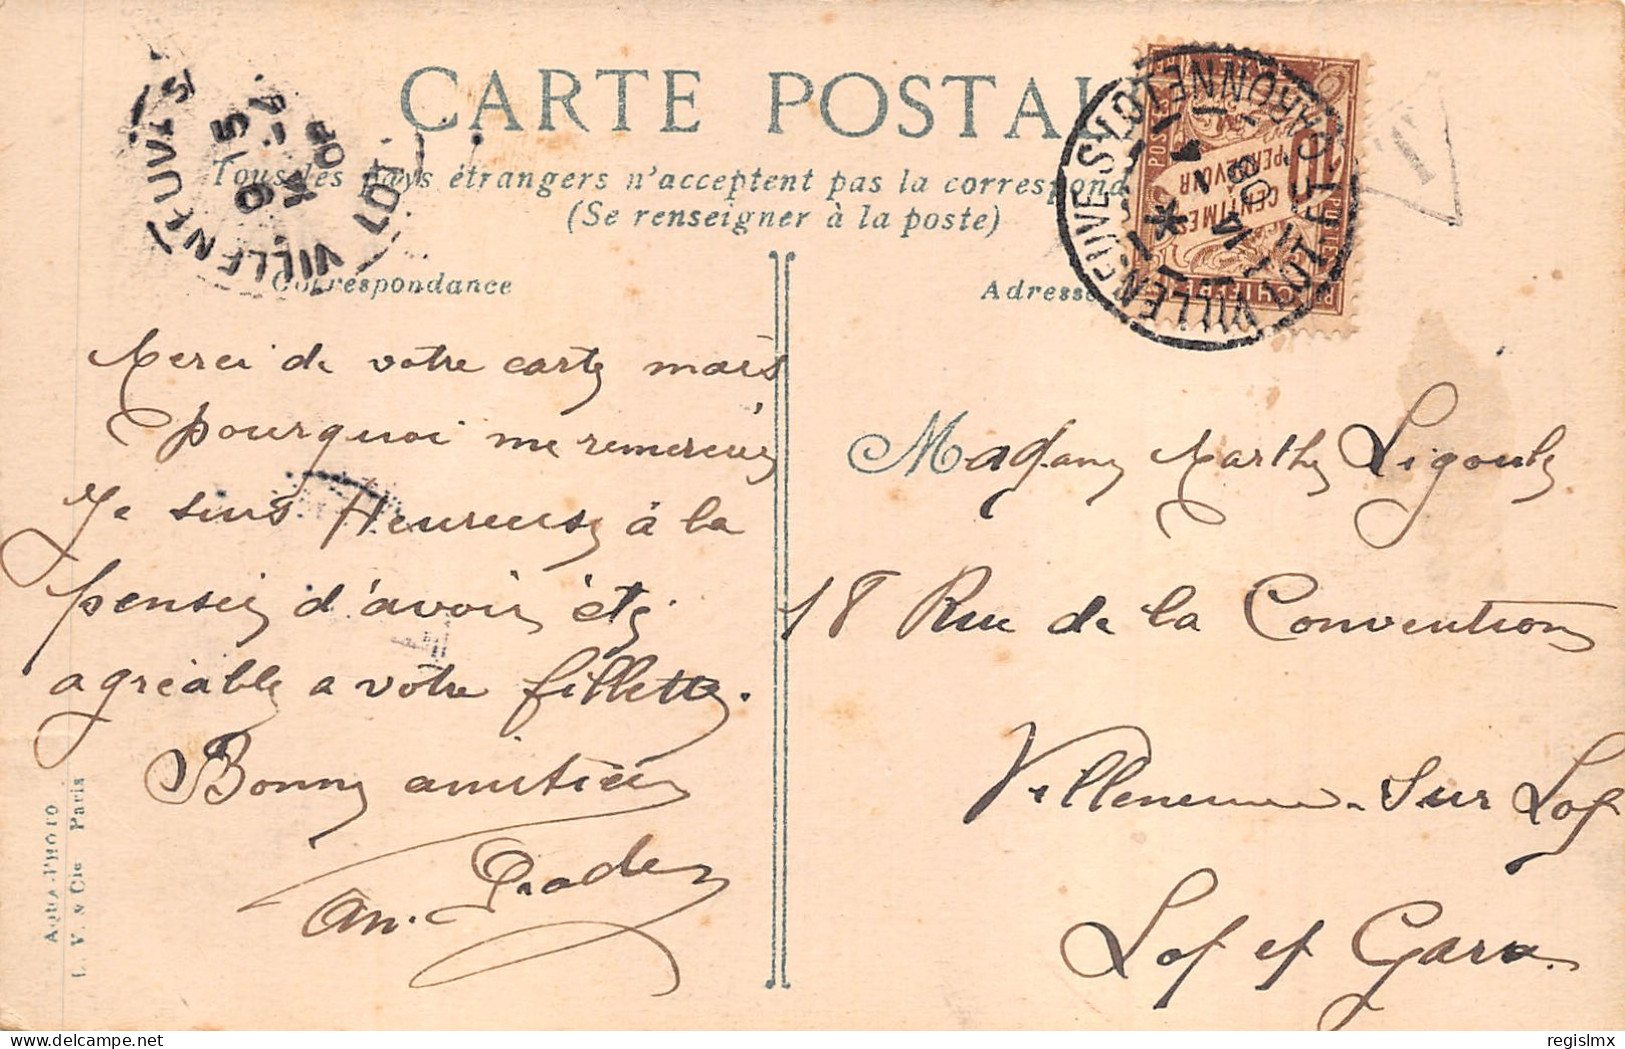 CARTE POSTALE
Tous les pays étrangers n'acceptent pas la correspond
(Se renseigner à la poste)
Correspondance
Adresse
VILLENEUVE S LOT
VILLENEUVE S LOT LOT ET GARONNE
14
1
08
10
CENTIMES
À
PERCEVOIR
T
Merci de votre carte mais
pourquoi me remercier
Je suis Heureuse à la
pensée d'avoir été
agréable a votre fillette.
Bonne amitiée
Madame Marthe Ligoule
18 Rue de la Convention
Villeneuve-Sur Lot
Lot et Garo.
AQUA-PHOTO
L. V. & Cie Paris
regislmx